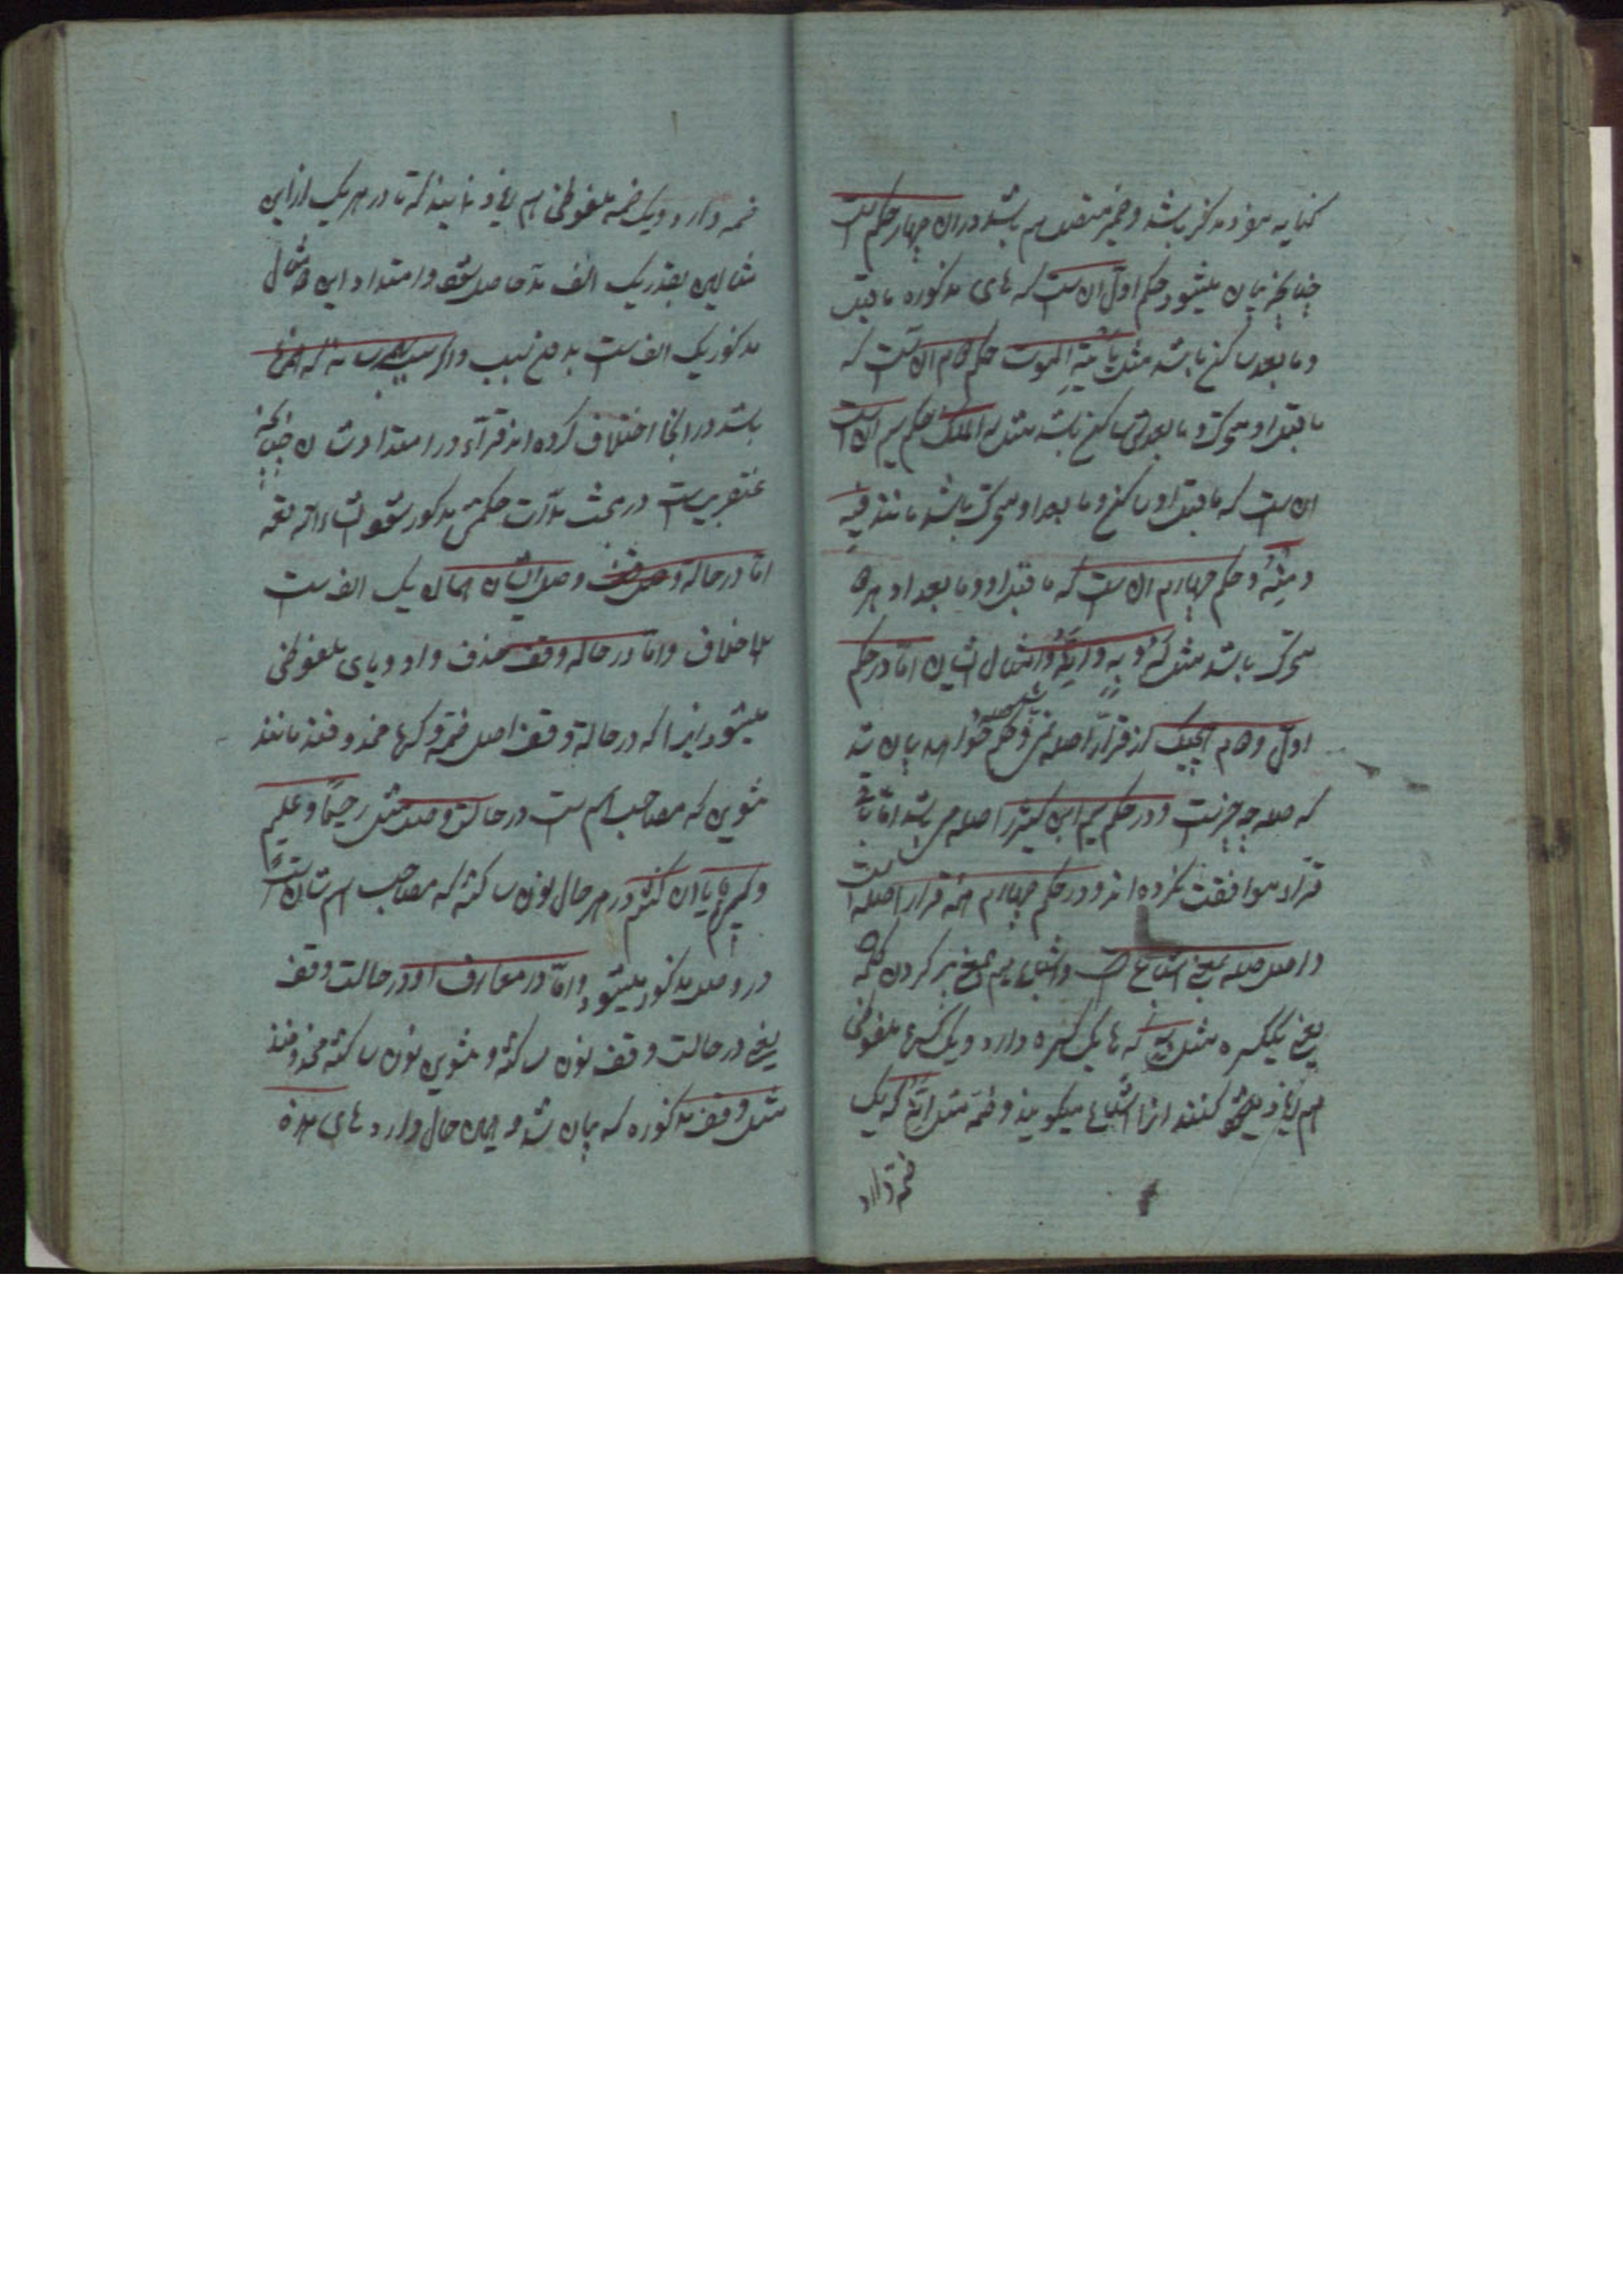 کنایه مفرد مذکر باشد و ضمیر متصل هم باشد دران چهار حکم است
چنانچه بیان میشود حکم اول ان ست که های مذکوره ماقبل
و مابعدس ساکن باشد مثل یأتیه الموت حکم دوم ان ست که
ماقبل او متحرک و مابعدش ساکن باشد مثل له الملک حکم سیم ان ست
ان ست که ماقبل او ساکن و مابعد او متحرک باشد مانند فیه
و منه و حکم چهارم ان ست که ماقبل او و مابعد او هر دو
متحرک باشد مثل له و به و انه و امثال ایشان اما در حکم
اول و دوم هیچیک از قرا را صله نیست و حکم خواهد بیان شد
که صله چه چیزست و در حکم سیم ابن کثیر را صله می باشد اما باقی
قراء موافقت نکرده اند و در حکم چهارم همه قرا را صله است
و اصل صله بمعنی اشباع است و اشباع هم بمعنی پر کردن کلمه
یعنی یک کسره مثل به که ها یک کسره دارد و یک کسره ملفوظی
هم اضافه کنند انرا اشباع میگویند و ضمه مثل انه که یک
ضمه دارد
ضمه دارد و یک ضمه ملفوظی هم اضافه نمایند که تا در هر یک ازاین
مثالین بقدر یک الف مد حاصل شود و امتداد این دو مثال
مذکور یک الف ست بدون سبب و اگر سبب
باشد در انجا اختلاف کرده اند قرآء در امتداد شان چنانچه
عنقریب ست در بحث مدآت حکمش مذکور شود انشاءالله تعالی
اما در حاله وصل ایشان همان یک الف ست
بلا خلاف و اما در حاله وقف حذف واو و یای ملفوظی
میشود زیرا که در حالة وقف اصل ضمه و کسره محذوفند مانند
تنوین که مصاحب اسم ست در حالت وصل مثل رحیما و علیم
و در هر حال نون ساکنه که مصاحب اسم شان ست
در وصل مذکور میشود و اما در معارف او در حالت وقف
یعنی در حالت وقف نون ساکنه و تنوین نون ساکنه محذوفند
مثل وقف مذکوره که بیان شد و همین حال دارد های هذه